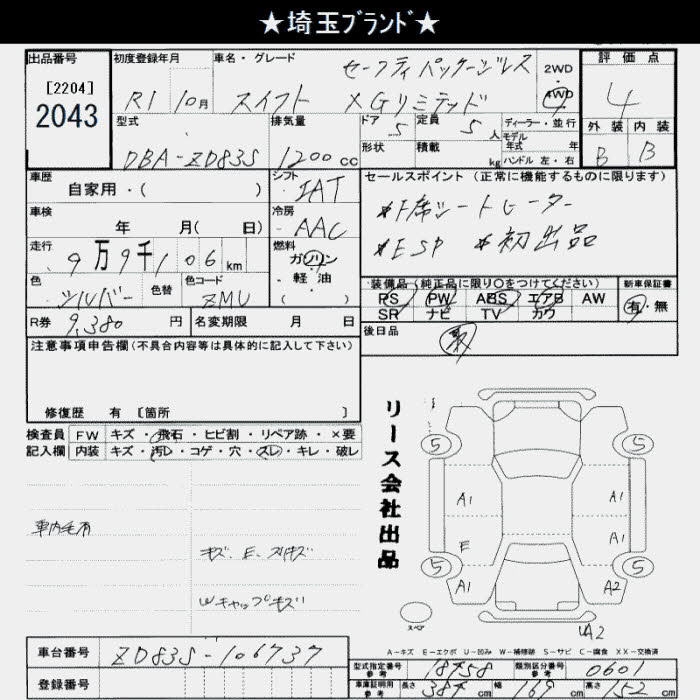 ★埼玉ブランド★
出品番号
[2204]
2043
初度登録年月
R1 10月
車名・グレード
セーフティパッケージレス
スイフト XGリミテッド
2WD
4WD
評価点
4
外装 内装
B B
型式
DBA-ZD83S
排気量
1200 cc
ドア 5
定員 5 人
形状
積載 kg
ディーラー・並行
モデル年式 年
ハンドル 左・右
車歴
自家用・( )
シフト
IAT
車検
年 月( 日)
冷房
AAC
走行
9万9千106 km
燃料
ガソリン
・軽油
( )
色
シルバー
色替
色コード
ZMU
R券 9,380 円
名変期限 月 日
セールスポイント(正常に機能するものに限ります)
*F席シートヒーター
*ESP *初出品
装備品(純正品に限り○をつけてください)
PS PW ABS エアB AW
SR ナビ TV カワ
新車保証書
有・無
後日品
注意事項申告欄(不具合内容等は具体的に記入して下さい)
修復歴 有 [箇所 ]
検査員記入欄
FW キズ・飛石・ヒビ割・リペア跡・×要
内装 キズ・汚レ・コゲ・穴・スレ・キレ・破レ
車内毛有
キズ、E、スリキズ
Wキャップキズ
リース会社出品
5 5
A1 A1
E A1
5 5
A1 A2
スペア
UA2
A-キズ E-エクボ U-凹み W-補修跡 S-サビ C-腐食 XX-交換済
車台番号 ZD83S-106737
登録番号
型式指定番号参考 18758
類別区分番号参考 0601
車庫証明用参考 長さ 387 cm 幅 169 cm 高さ 152 cm